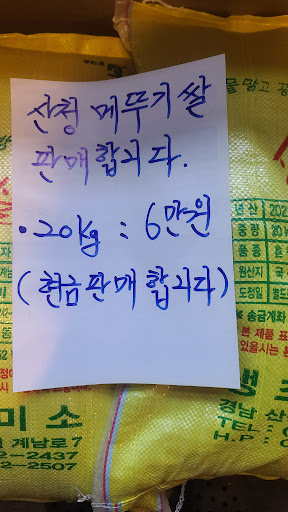 산청 메뚜기쌀
판매합니다.
· 20kg : 6만원
(현금판매합니다)
산
202
중 량
20
품 종
원산지
국
도정일
별도
송금계좌
본 제품
있을시는
미 소
계남로7
2-2437
2-2507
경남 산
TEL :
H.P :